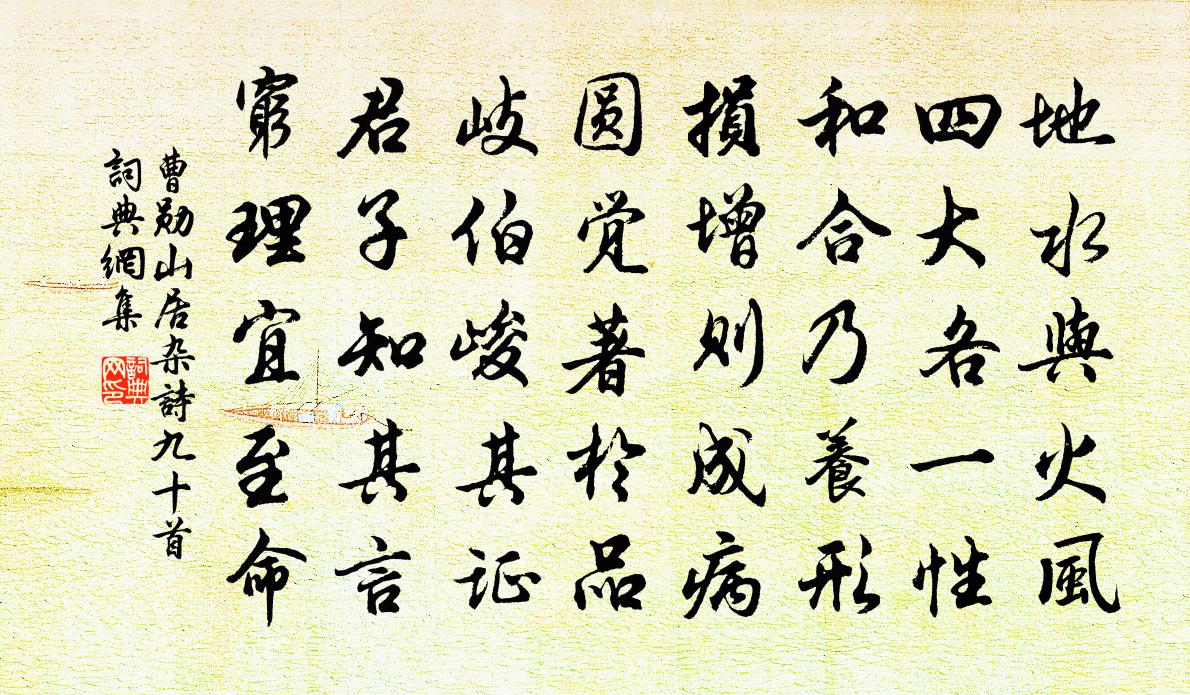 地水與火風
四大各一性
和合乃養形
損增則成病
圆觉著於品
岐伯峻其证
君子知其言
窮理宜至命
曹勛山居杂詩九十首
詞典網集
詞典
网印